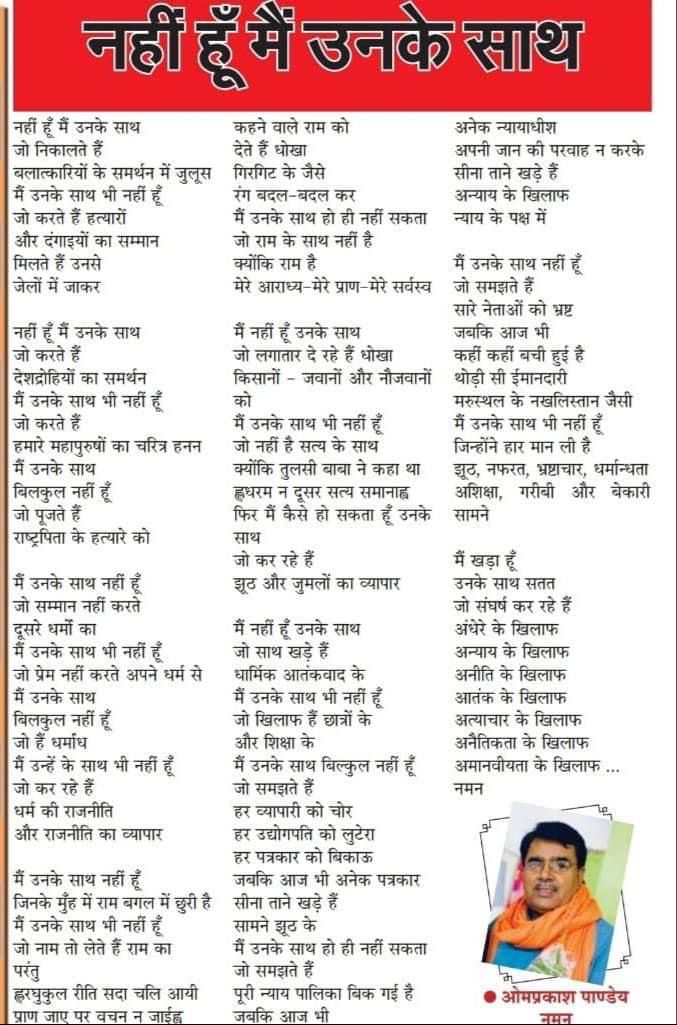 नहीं हूँ मैं उनके साथ
नहीं हूँ मैं उनके साथ
जो निकालते हैं
बलात्कारियों के समर्थन में जुलूस
मैं उनके साथ भी नहीं हूँ
जो करते हैं हत्यारों
और दंगाइयों का सम्मान
मिलते हैं उनसे
जेलों में जाकर
नहीं हूँ मैं उनके साथ
जो करते हैं
देशद्रोहियों का समर्थन
मैं उनके साथ भी नहीं हूँ
जो करते हैं
हमारे महापुरुषों का चरित्र हनन
मैं उनके साथ
बिलकुल नहीं हूँ
जो पूजते हैं
राष्ट्रपिता के हत्यारे को
मैं उनके साथ नहीं हूँ
जो सम्मान नहीं करते
दूसरे धर्मों का
मैं उनके साथ भी नहीं हूँ
जो प्रेम नहीं करते अपने धर्म से
मैं उनके साथ
बिलकुल नहीं हूँ
जो हैं धर्मांध
मैं उन्हें के साथ भी नहीं हूँ
जो कर रहे हैं
धर्म की राजनीति
और राजनीति का व्यापार
मैं उनके साथ नहीं हूँ
जिनके मुँह में राम बगल में छुरी है
मैं उनके साथ भी नहीं हूँ
जो नाम तो लेते हैं राम का
परंतु
ह्लरघुकुल रीति सदा चलि आयी
प्राण जाए पर वचन न जाईह्व
कहने वाले राम को
देते हैं धोखा
गिरगिट के जैसे
रंग बदल-बदल कर
मैं उनके साथ हो ही नहीं सकता
जो राम के साथ नहीं है
क्योंकि राम है
मेरे आराध्य-मेरे प्राण-मेरे सर्वस्व
मैं नहीं हूँ उनके साथ
जो लगातार दे रहे हैं धोखा
किसानों - जवानों और नौजवानों
को
मैं उनके साथ भी नहीं हूँ
जो नहीं है सत्य के साथ
क्योंकि तुलसी बाबा ने कहा था
ह्लधरम न दूसर सत्य समानाह्व
फिर मैं कैसे हो सकता हूँ उनके
साथ
जो कर रहे हैं
झूठ और जुमलों का व्यापार
मैं नहीं हूँ उनके साथ
जो साथ खड़े हैं
धार्मिक आतंकवाद के
मैं उनके साथ भी नहीं हूँ
जो खिलाफ हैं छात्रों के
और शिक्षा के
मैं उनके साथ बिल्कुल नहीं हूँ
जो समझते हैं
हर व्यापारी को चोर
हर उद्योगपति को लुटेरा
हर पत्रकार को बिकाऊ
जबकि आज भी अनेक पत्रकार
सीना ताने खड़े हैं
सामने झूठ के
मैं उनके साथ हो ही नहीं सकता
जो समझते हैं
पूरी न्याय पालिका बिक गई है
जबकि आज भी
अनेक न्यायाधीश
अपनी जान की परवाह न करके
सीना ताने खड़े हैं
अन्याय के खिलाफ
न्याय के पक्ष में
मैं उनके साथ नहीं हूँ
जो समझते हैं
सारे नेताओं को भ्रष्ट
जबकि आज भी
कहीं कहीं बची हुई है
थोड़ी सी ईमानदारी
मरुस्थल के नखलिस्तान जैसी
मैं उनके साथ भी नहीं हूँ
जिन्होंने हार मान ली है
झूठ, नफरत, भ्रष्टाचार, धर्मान्धता
अशिक्षा, गरीबी और बेकारी
सामने
मैं खड़ा हूँ
उनके साथ सतत
जो संघर्ष कर रहे हैं
अंधेरे के खिलाफ
अन्याय के खिलाफ
अनीति के खिलाफ
आतंक के खिलाफ
अत्याचार के खिलाफ
अनैतिकता के खिलाफ
अमानवीयता के खिलाफ ...
नमन
● ओमप्रकाश पाण्डेय
नमन